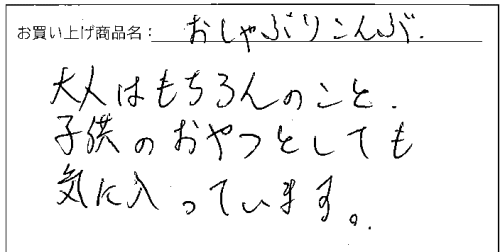 お買い上げ商品名: おしゃぶりこんぶ.
大人はもちろんのこと.
子供のおやつとしても
気に入っています。